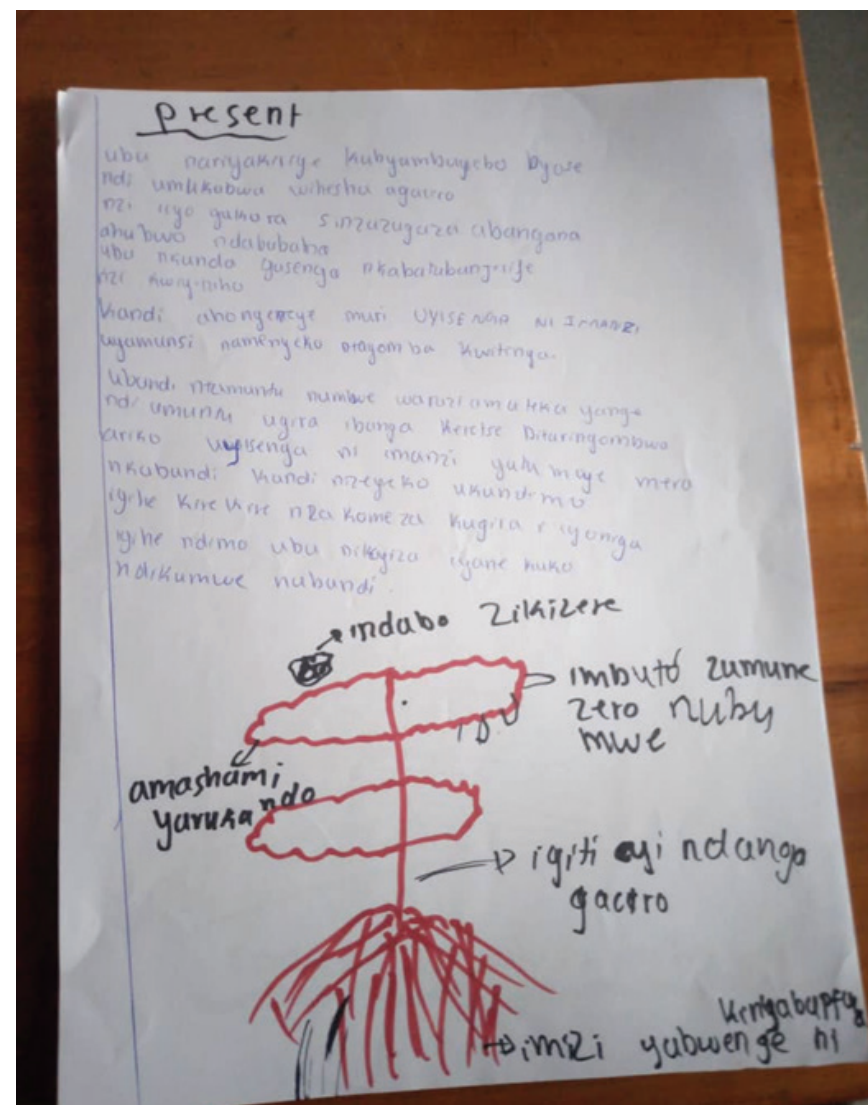 present
ubu nariyakiriye kubyambayeho byose
ndi umukobwa wihesha agaciro
nzi icyo gukora sinzuzugaza abangana
ahubwo ndabubaha
ubu nkunda gusenga nkabatubanjirije
nzi kwiyitaho
kandi ahongereye muri UYISENGA NI IMANZI
uyamunsi namenyeko ntagomba kwitinya.
Ubundi ntamuntu numwe waruzi amateka yange
ndi umuntu ugira ibanga keretse
ariko uyisenga ni imanzi yatumaye mera
nkabandi kandi nzeyeko ukundimo
igihe kirekire nza komeza kugira icyoniga
igihe ndimo ubu nikagiza cyane kuko
ndikumwe nabandi.
indabo zikizere
imbuto zumume
zero nuby
mwe
amashami
yarukando
igiti cyi ndanga
gaciro
imizi yabwenge ni